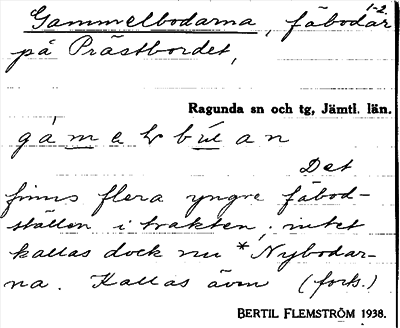 1-2.
Gammelbodarna, fäbodar
på Prästbordet,
Ragunda sn och tg, Jämtl. län.
Det
finns flera yngre fäbod-
ställen i trakten, intet
kallas dock nu *Nybodar-
na. Kallas även (forts.)
BERTIL FLEMSTRÖM 1938.